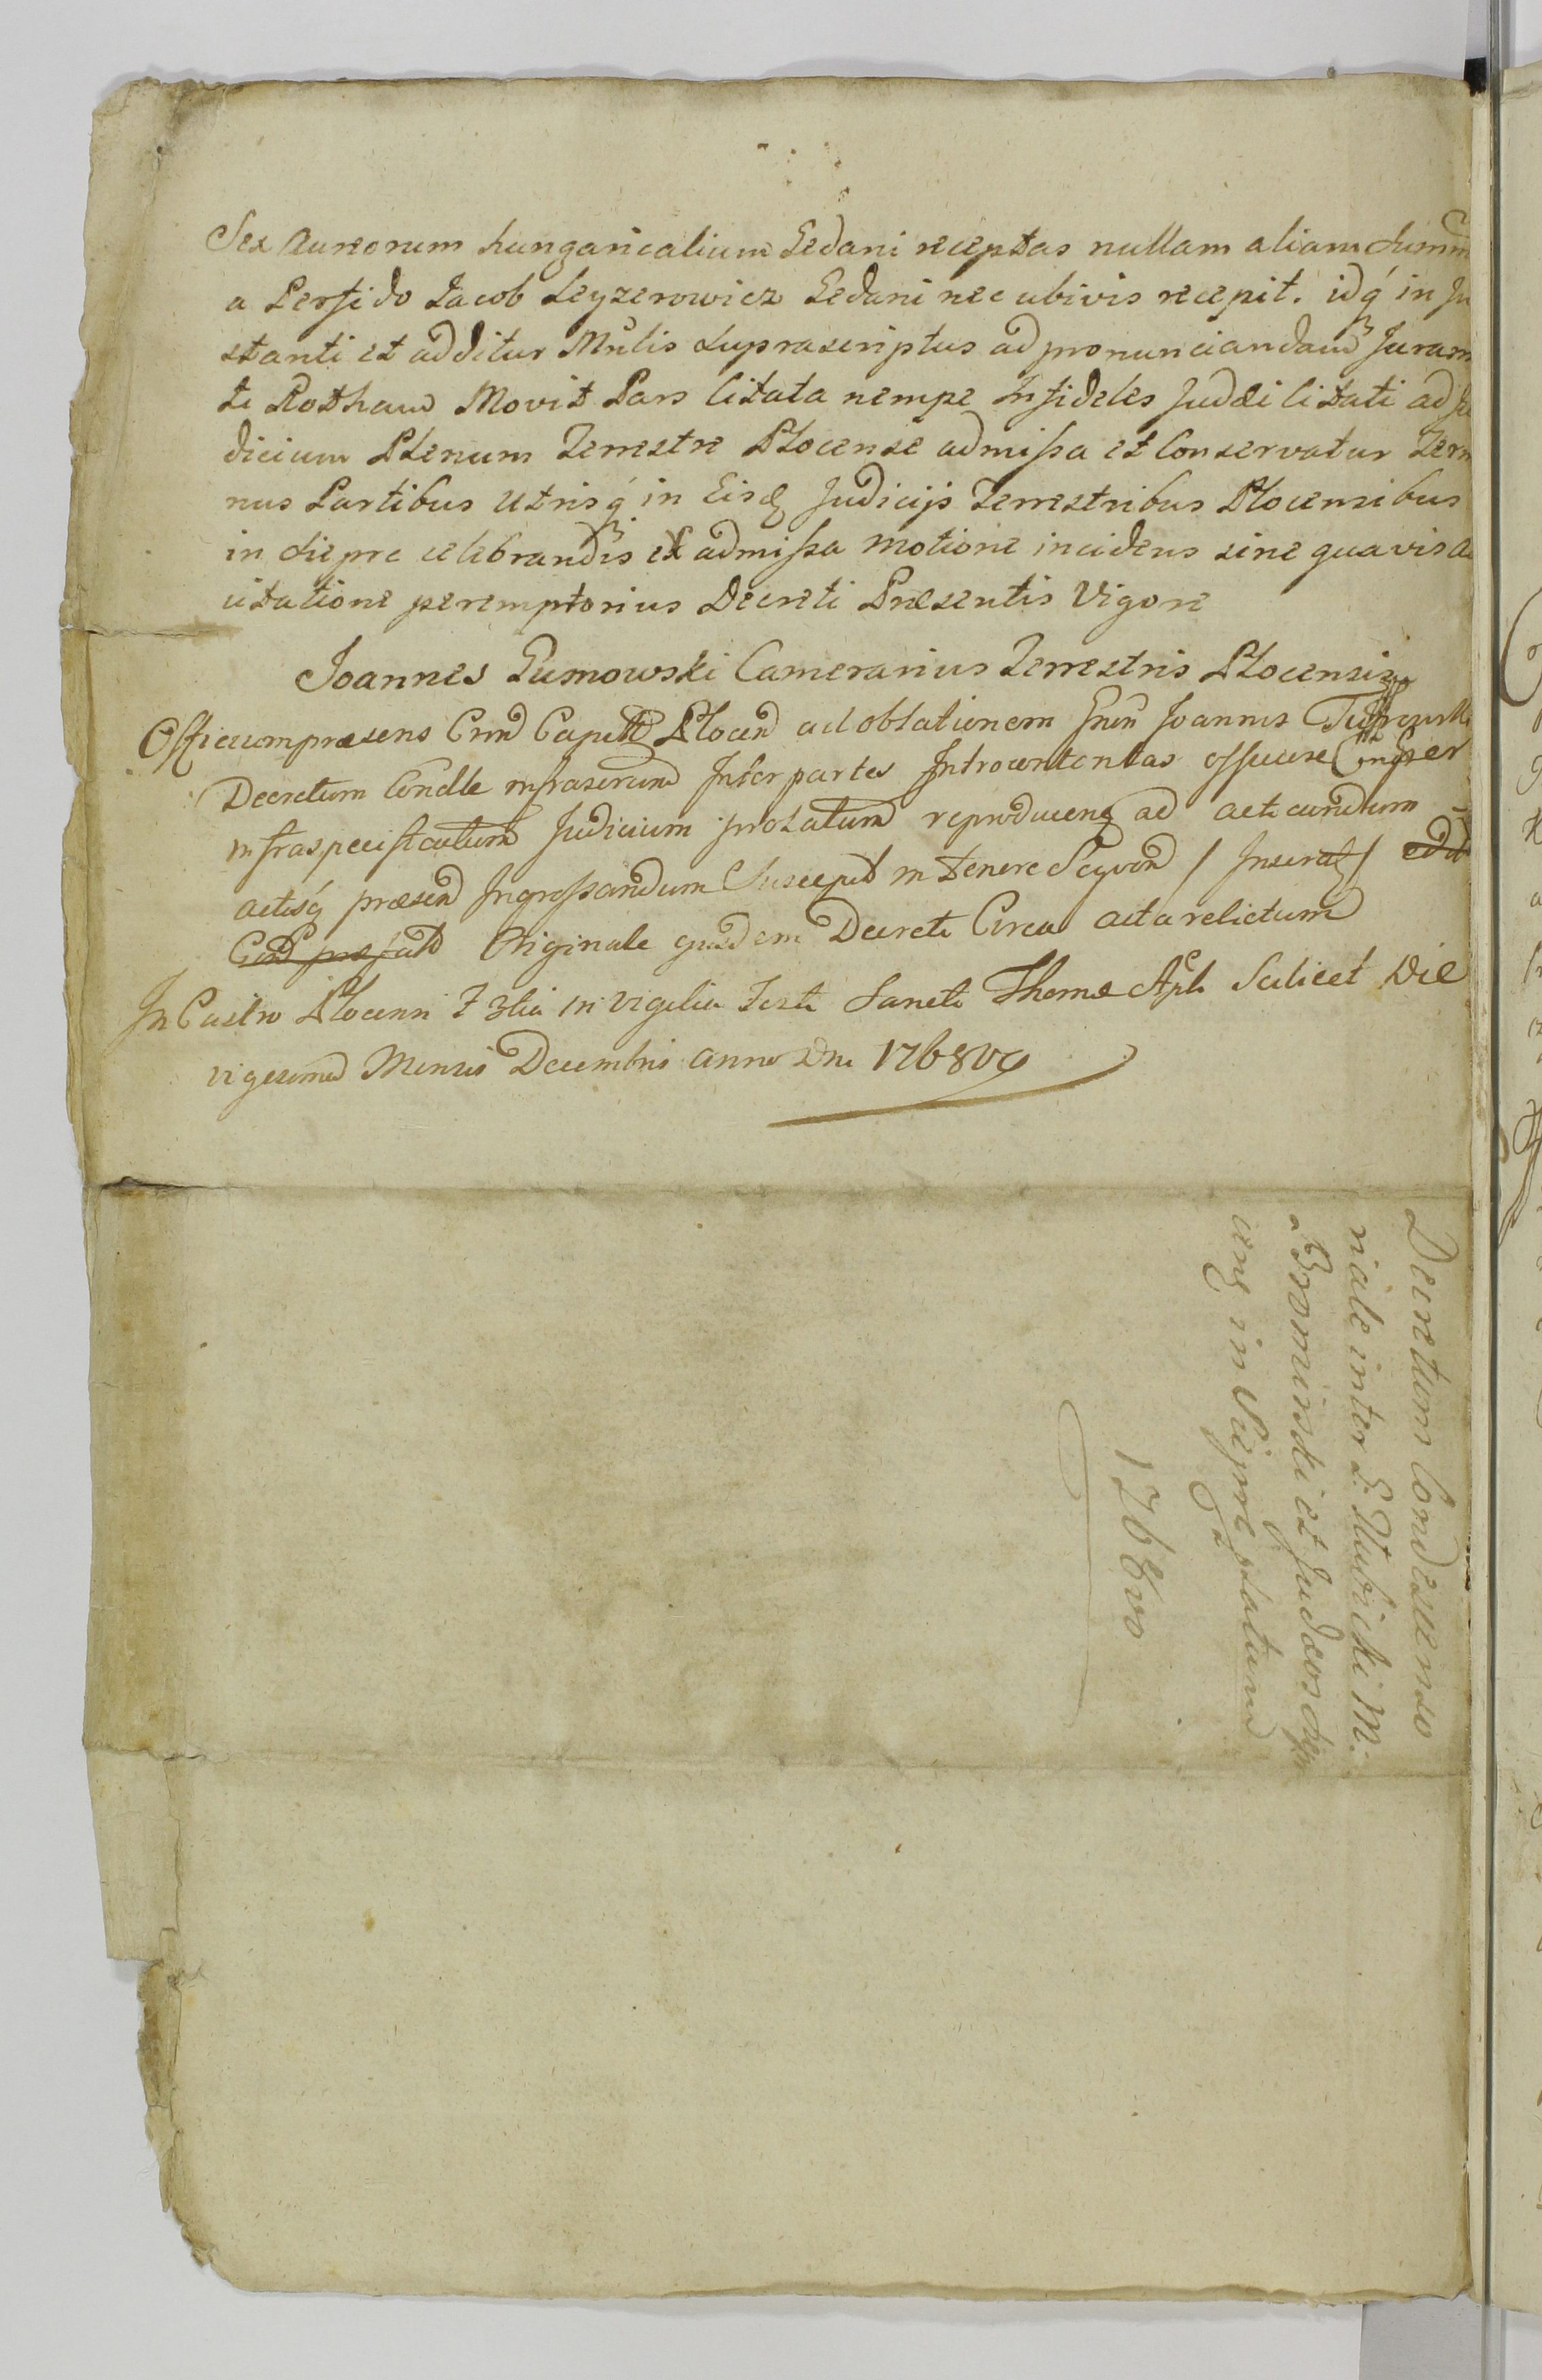 Sex Aureorum hungaricalium Gedani receptas nullam aliam summ
a Perfido Jacob Leyzerowicz Gedani nec ubivis recepit. idq́ in Ju
stanti et additur Mnlis supra scriptus ad pronunciandam Juram
ti Rotham Movit Pars Citata nempe Infideles Judæi Citati ad Ju
dicium Plenum Terrestre Plocense admissa et Conservatur Term
nus Partibus Utrisq́ in Eisd Judicijs Terrestribus Plocensibus
in Sieprc celebrandis ex admissa motione incidens sine quavis a
citatione peremptorius Decreti Præsentis Vigore
Joannes Gumowski Camerarius Terrestris Plocensis
Officium præsens Cap Plocen ad oblationem Joannis
Decretum Condlle infrascrum Inter partes Introcontentas
infraspecificatum Judicium prolatum reproducen ad acticandum
actisq́ præsen Ingrossandum Suscepit in tenere Seqven / Inserat /
Originale ejusdem Decreti Circa acta relictum
In Castro Plocenn in Vigilia Festi Sancti Thomæ Apli Scilicet Die
vigesima Mensis Decembris anno Dni 1768vo
Decretum Condescenso
riale inter G. Dłubicki M.
Bromirski et Judæos
in Sieprc platum
1768vo